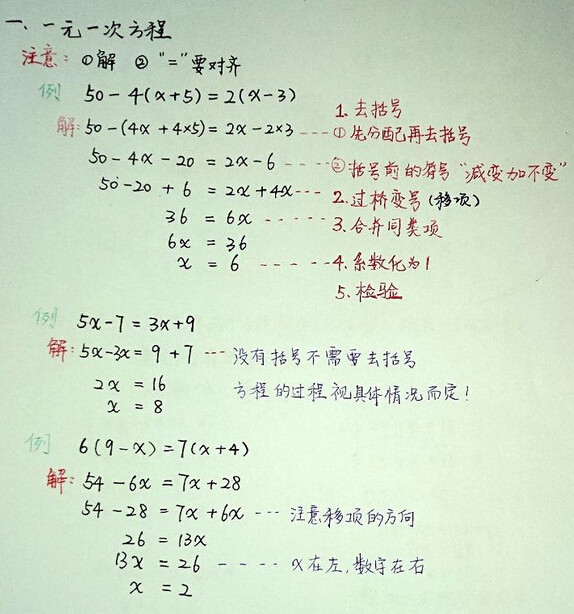 一、一元一次方程
注意: ①解 ② "="要对齐
例 50-4(x+5)=2(x-3)
1. 去括号
解: 50-(4x+4×5)=2x-2×3 --- ① 先分配再去括号
50-4x-20=2x-6 --- ② 括号前的符号"减变加不变"
50-20+6=2x+4x --- 2. 过桥变号(移项)
36=6x ----- 3. 合并同类项
6x=36
x=6 ----- 4. 系数化为1
5. 检验
例 5x-7=3x+9
解: 5x-3x=9+7 --- 没有括号不需要去括号
2x=16 方程的过程视具体情况而定!
x=8
例 6(9-x)=7(x+4)
解: 54-6x=7x+28
54-28=7x+6x --- 注意移项的方向
26=13x
13x=26 ---- x在左,数字在右
x=2